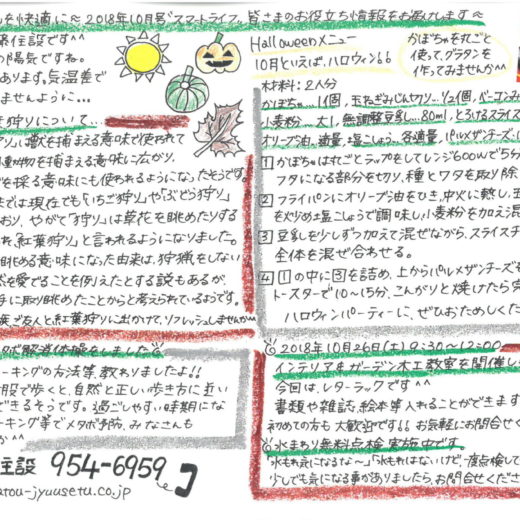 を快適に〜2018年10月号"スマートライフ。皆さまのお役立ち情報をお届けします〜
住設です^^
の陽気ですね。
あります。気温差で
ませんように...
狩りについて...
獣を捕まえる意味で使われて
動物を捕まえる意味に広がり、
を採る意味にも使われるようになったそうです。
では現在でも「いちご狩り」や「ぶどう狩り」
おり、やがて「狩り」は草花を眺めたりする
れ、「紅葉狩り」と言われるようになりました。
眺める意味になった由来は、狩猟をしない
然を愛でることを例えたとする説もあるが、
手に取り眺めたことからと考えられているようです。
ご友人と、紅葉狩りに出かけて、リフレッシュしませんか〜
解消体操をしました
ーキングの方法等教わりましたよ!!
股で歩くと、自然と正しい歩き方に近い
できるそうです。過ごしやすい時期にな
ーキング等でメタボ予防、みなさんも
か^^
住設 954-6959
atou-jyuusetu.co.jp
Halloweenメニュー
10月といえば、ハロウィン
かぼちゃを丸ごと
使って、グラタンを
作ってみませんか^^
材料:2人分
かぼちゃ...1個、玉ねぎみじん切り...1/2個、ベーコンみ
小麦粉...大1、無調整豆乳...80ml、とろけるスライス
オリーブ油、適量、塩こしょう、各適量、パルメザンチーズ、
1 かぼちゃは丸ごとラップをしてレンジ600Wで5分
フタになる部分を切り、種とワタを取り除
2 フライパンにオリーブ油をひき、中火に熱し、玉
を炒め塩こしょうで調味し、小麦粉を加え混
3 豆乳を少しずつ加えて混ぜながら、スライスチ
全体を混ぜ合わせる。
4 1の中に3を詰め、上からパルメザンチーズを
トースターで10〜15分、こんがりと焼けたら完
ハロウィンパーティーに、ぜひおためしくだ
2018年10月26日(土)9:30〜12:00
インテリア&ガーデン木工教室を開催し
今回は、レターラックです^^
書類や雑誌、絵本等入れることができます
初めての方も大歓迎です!! お気軽にお問合せく
水まわり無料点検実施中です
「水もれ気になるな〜」「水もれはないけど、一度点検して
少しでも気になる事がありましたら、お問合せくださ